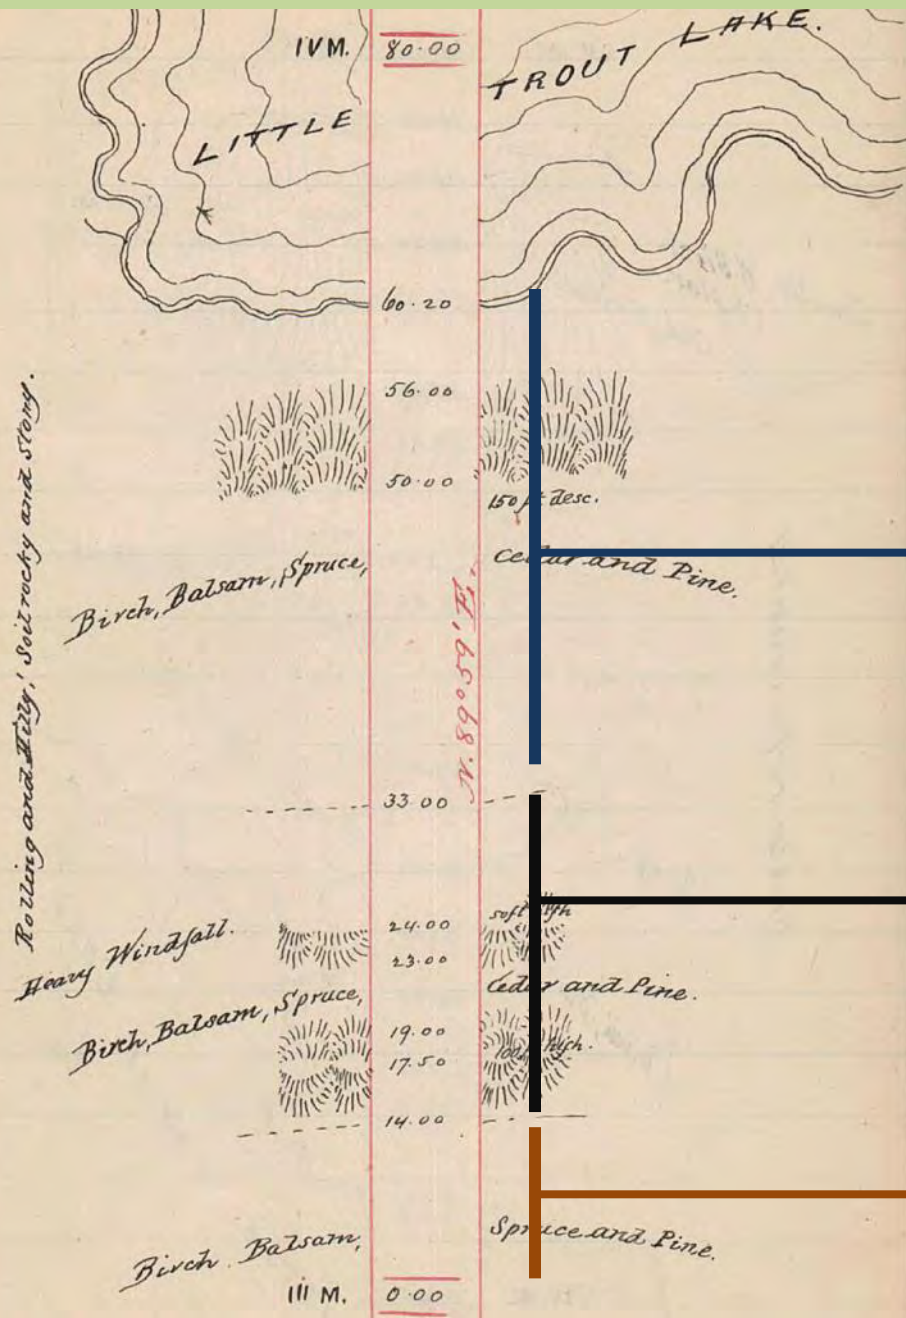 IVM. 80.00
LITTLE TROUT LAKE.
60.20
56.00
50.00
150 ft desc.
Birch, Balsam, Spruce, Cedar and Pine.
N. 89° 59' E.
Rolling and Hilly, Soil rocky and stony.
33.00
24.00
high
Heavy Windfall.
23.00
Birch, Balsam, Spruce, Cedar and Pine.
19.00
high.
17.50
14.00
Birch Balsam, Spruce and Pine.
III M. 0.00